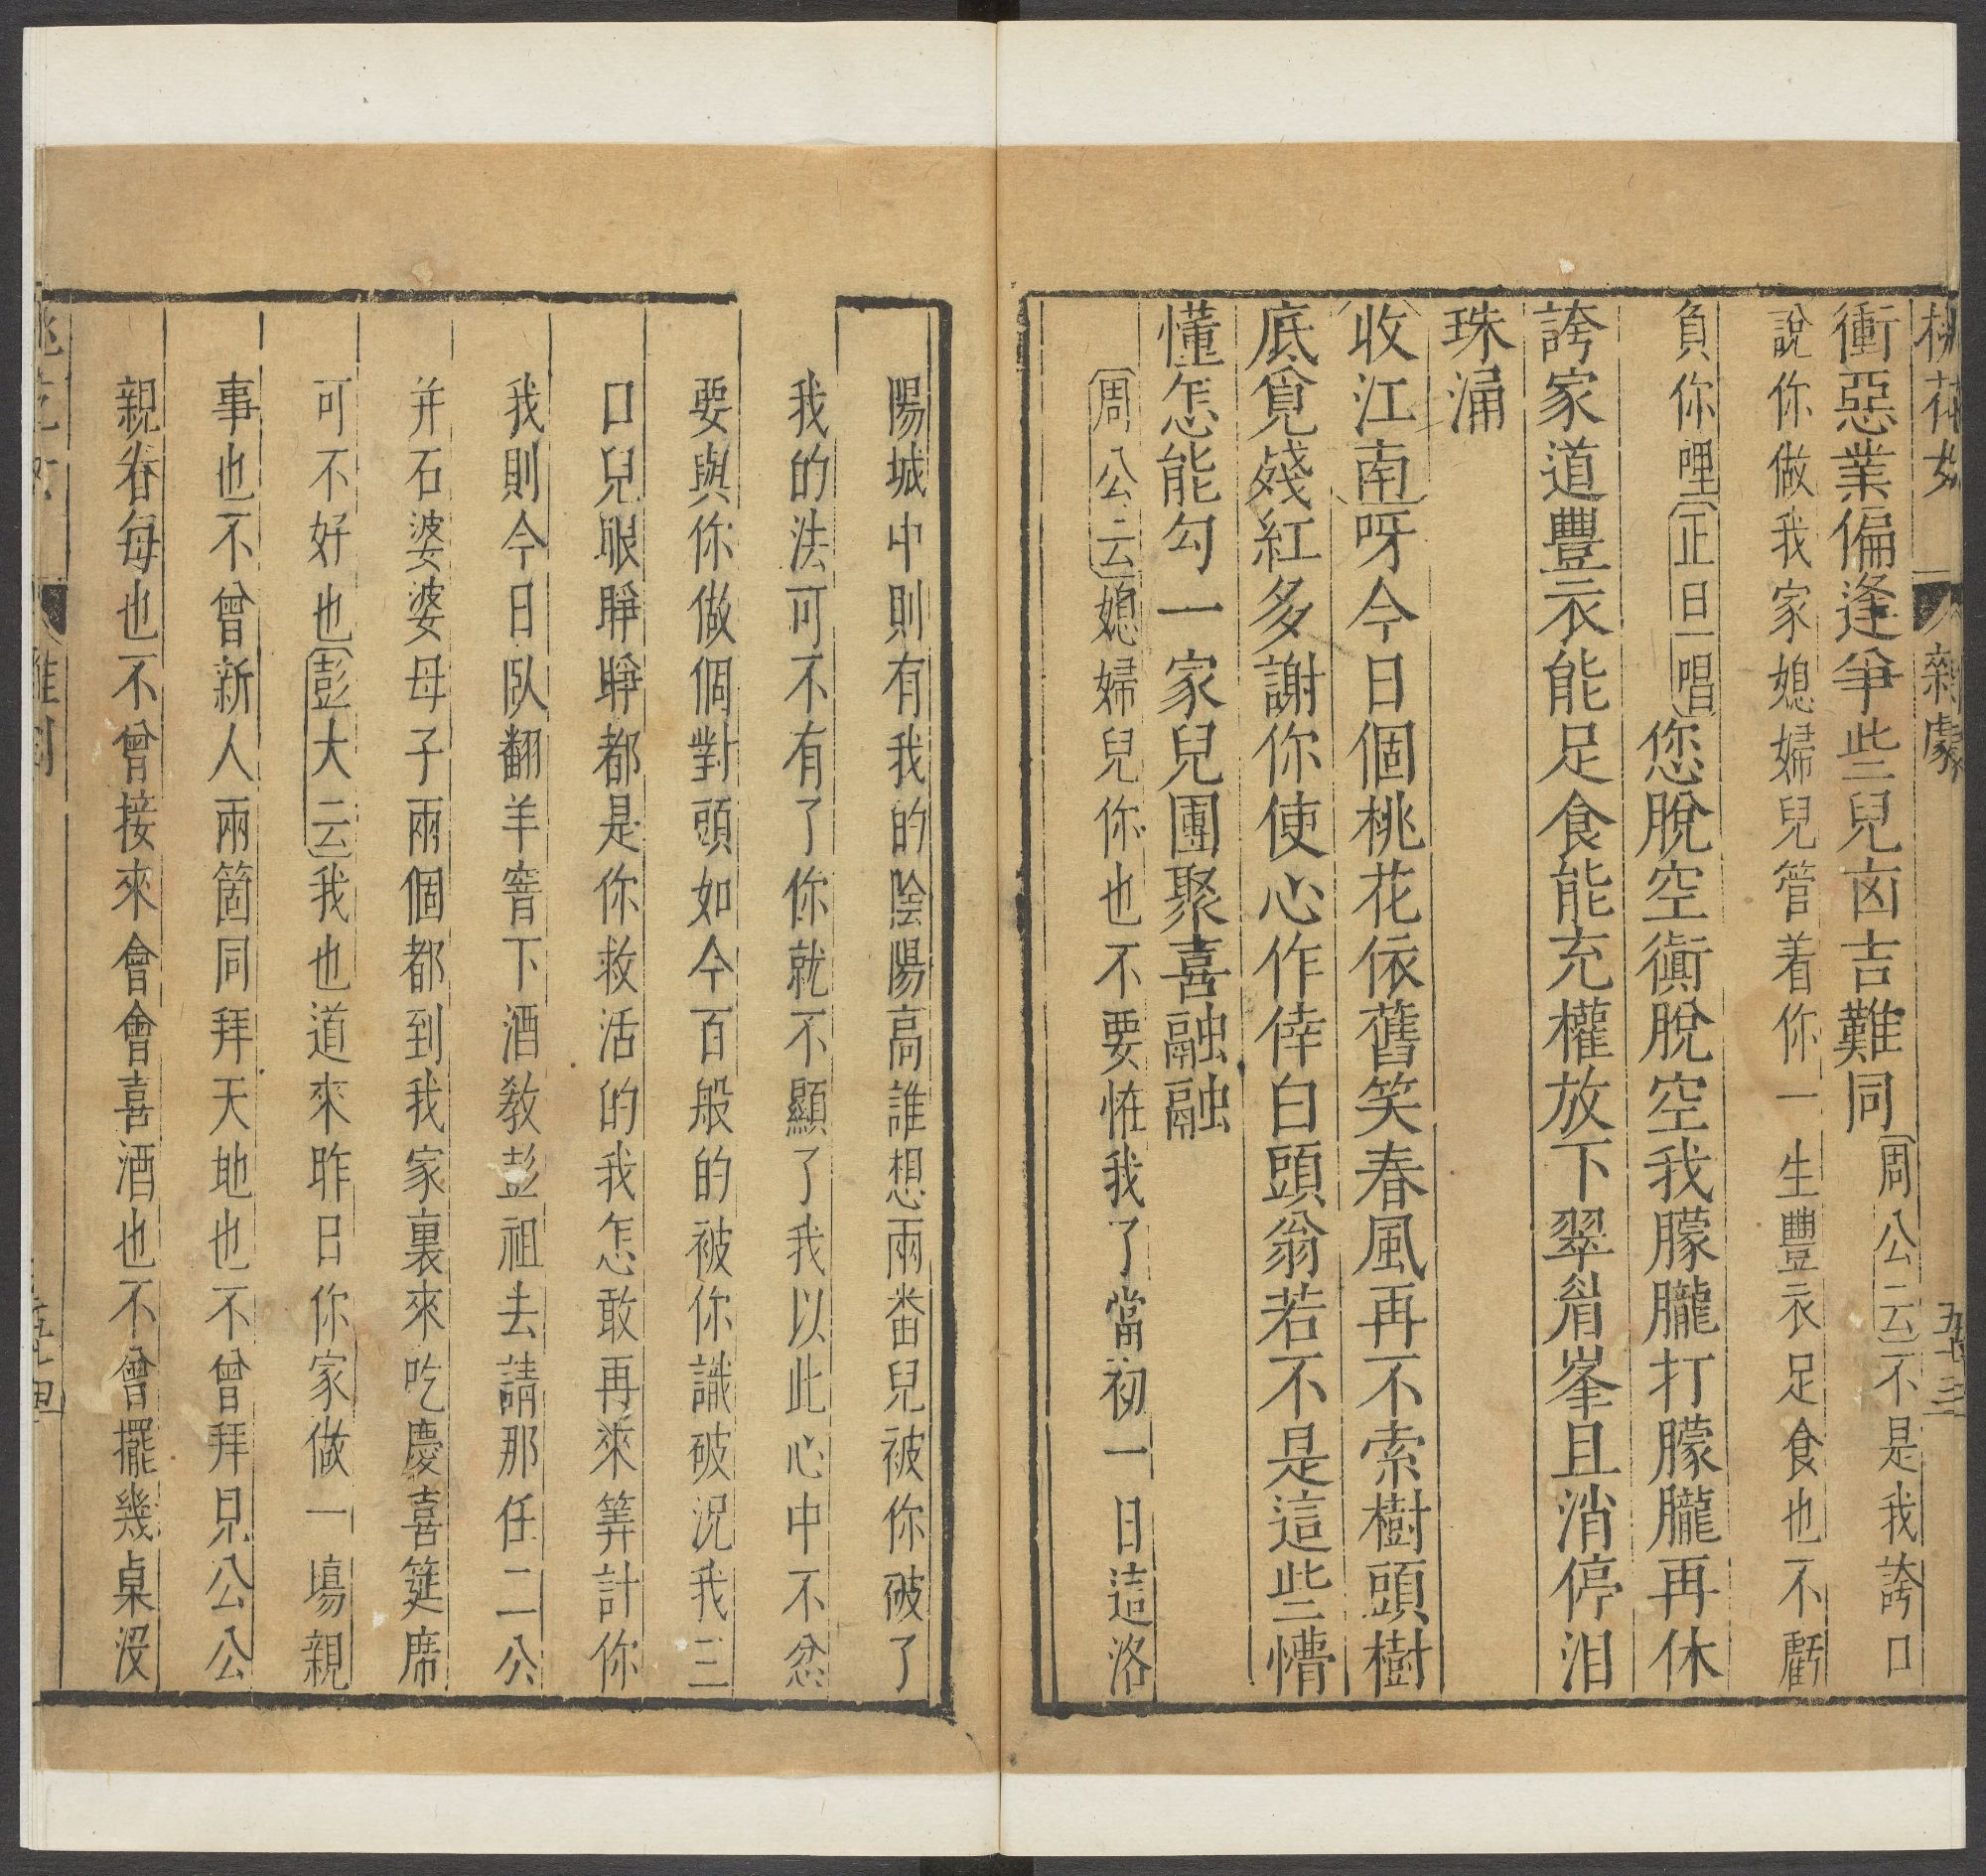 桃花女 雜劇 五十三
衝惡業偏逢爭些兒凶吉難同周公云不是我誇口
說你做我家媳婦兒管着你一生豐衣足食也不虧
負你哩正旦唱您脫空衠脫空我朦朧打朦朧再休
誇家道豐衣能足食能充權放下翠眉峯且消停泪
珠涌
收江南呀今日個桃花依舊笑春風再不索樹頭樹
底覓殘紅多謝你使心作倖白頭翁若不是這些懵
懂怎能勾一家兒團聚喜融融
周公云媳婦兒你也不要恠我了當初一日這洛
陽城中則有我的陰陽高誰想兩番兒被你破了
我的法可不有了你就不顯了我以此心中不忿
要與你做個對頭如今百般的被你識破況我三
口兒眼睜睜都是你救活的我怎敢再來筭計你
我則今日臥翻羊窨下酒教彭祖去請那任二公
并石婆婆母子兩個都到我家裏來吃慶喜筵席
可不好也彭大云我也道來昨日你家做一塲親
事也不曾新人兩箇同拜天地也不曾拜見公公
親眷每也不曾接來會會喜酒也不曾擺幾桌沒